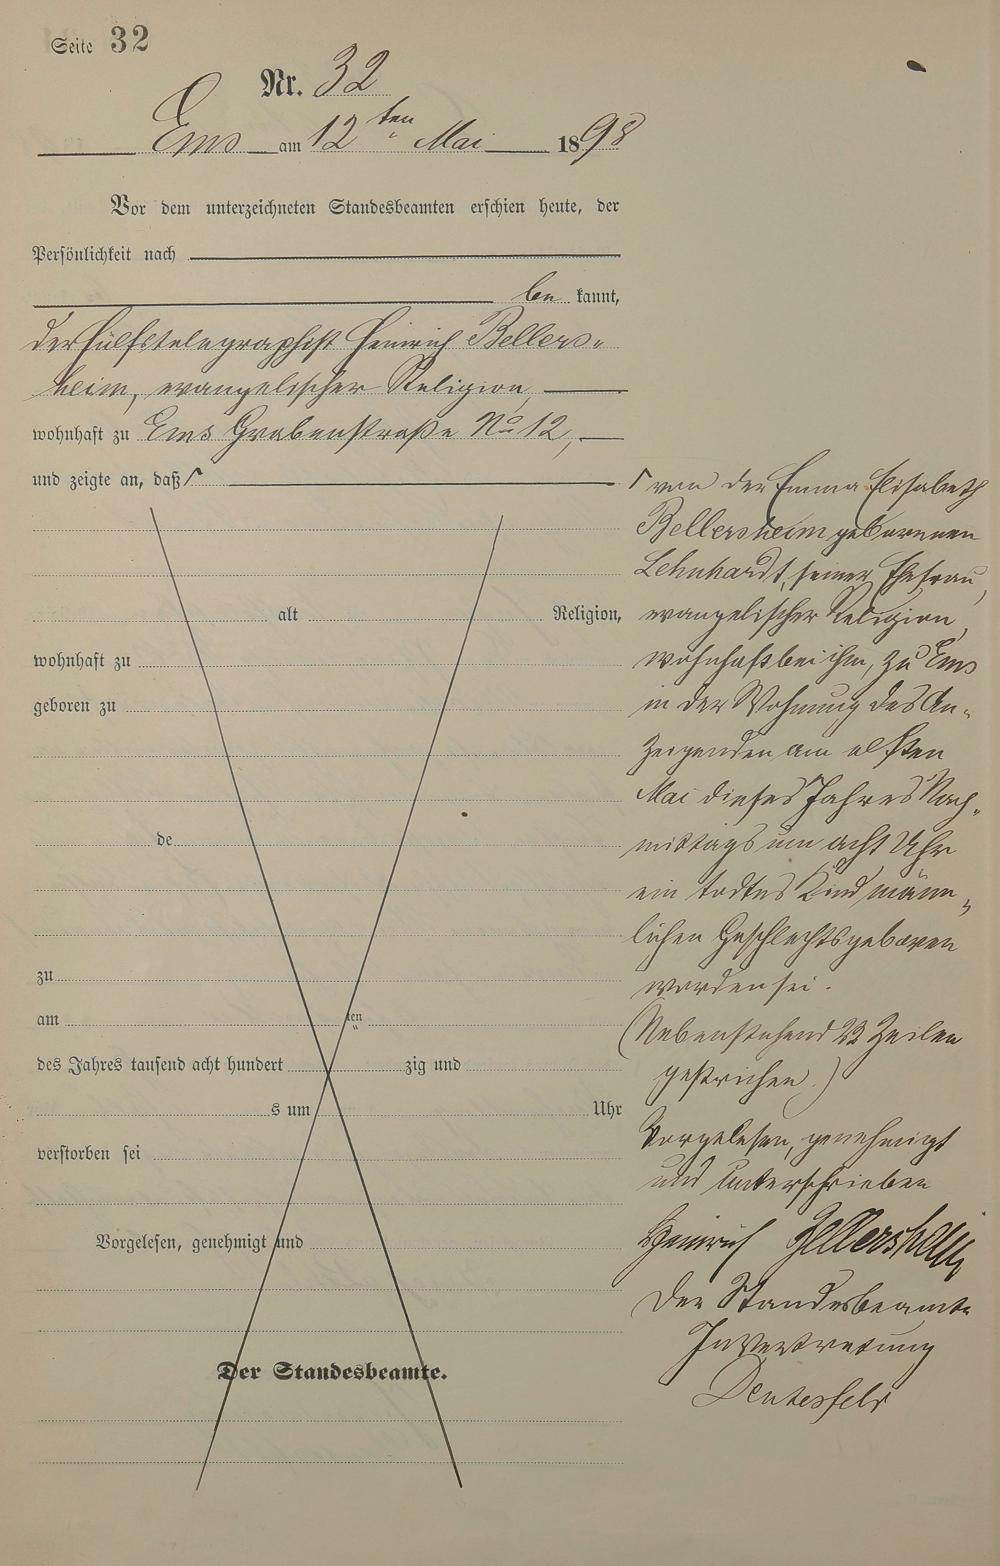 Seite 32
Nr. 32
Ems am 12ten Mai 1898
Vor dem unterzeichneten Standesbeamten erschien heute, der
Persönlichkeit nach
be kannt,
der Hülfstelegraphist Heinrich Bellers-
heim, evangelischer Religion,
wohnhaft zu Ems Grabenstraße No 12,
und zeigte an, daß
alt Religion,
wohnhaft zu
geboren zu
de
zu
am ten
des Jahres tausend acht hundert zig und
s um Uhr
verstorben sei
Vorgelesen, genehmigt und
Der Standesbeamte.
von der Emma Elisabeth
Bellersheim geborenen
Lehnhardt, seiner Ehefrau,
evangelischer Religion,
wohnhaft bei ihm, zu Ems
in der Wohnung des An-
zeigenden am elften
Mai dieses Jahres Nach-
mittags um acht Uhr
ein todtes Kind männ-
lichen Geschlechts geboren
worden sei.
(Nebenstehend 23 Zeilen
gestrichen.)
Vorgelesen, genehmigt
und unterschrieben
Heinrich Bellersheim
Der Standesbeamte
In Vertretung